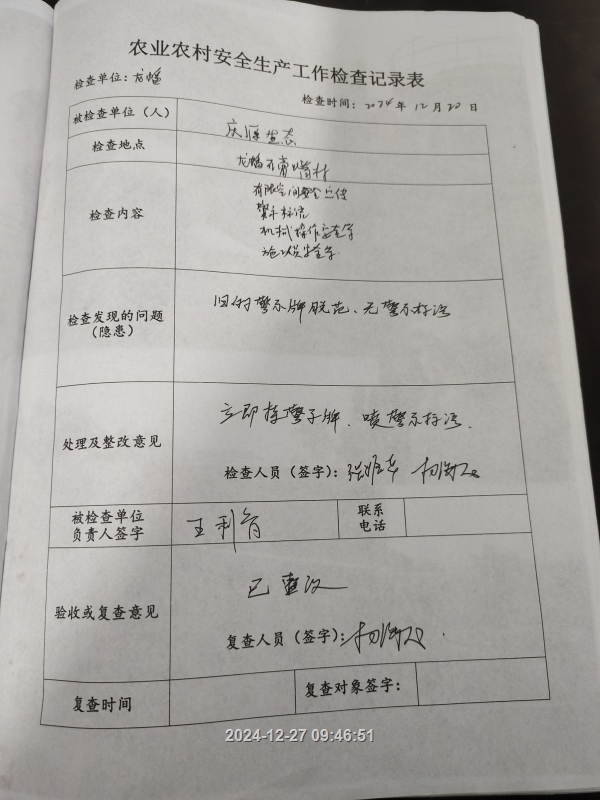 农业农村安全生产工作检查记录表
检查单位：龙蟠
检查时间：2024年12月20日
被检查单位（人） 庆源生态
检查地点 龙蟠
检查内容 有限空间安全
警示标语
机械操作安全等
检查发现的问题
（隐患）
旧的警示牌脱落、无警示标语
处理及整改意见
立即 警示牌、喷警示标语。
检查人员（签字）：
被检查单位
负责人签字
王利
联系
电话
验收或复查意见
已整改
复查人员（签字）：
复查时间
复查对象签字：
2024-12-27 09:46:51